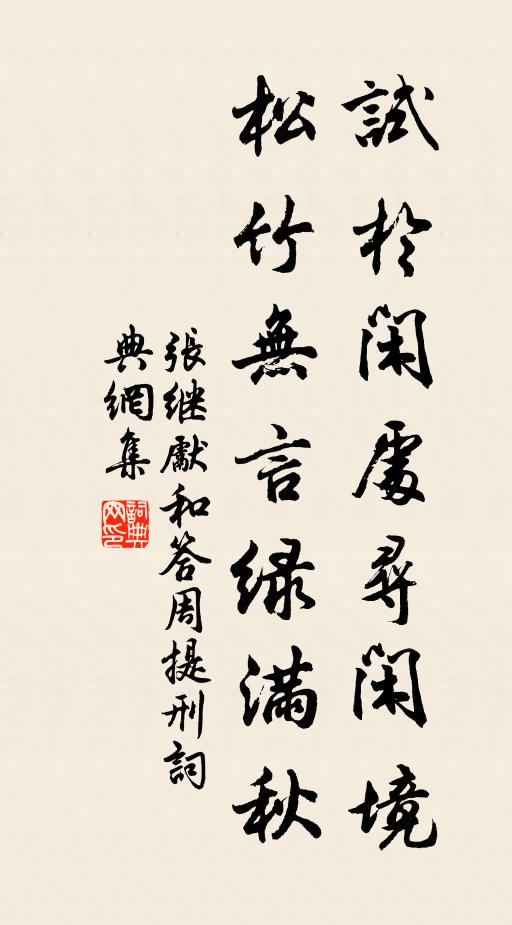 試於閑處尋閑境
松竹無言綠滿秋
張继獻和答周提刑詞
典網集
詞典
网印